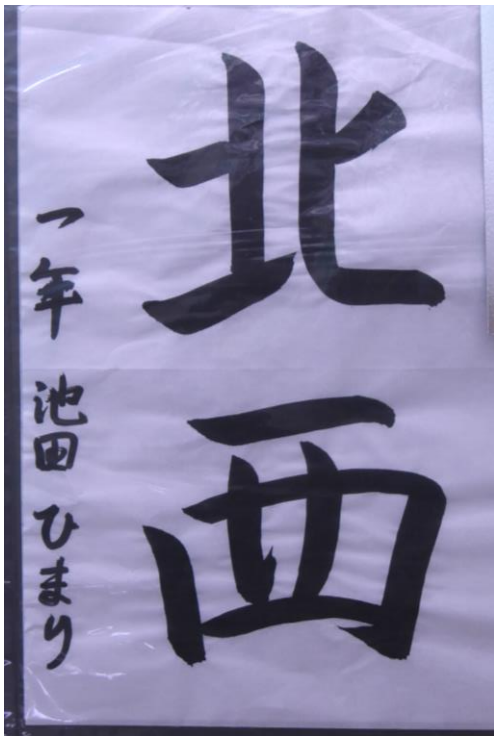 北西
一年 池田 ひまり